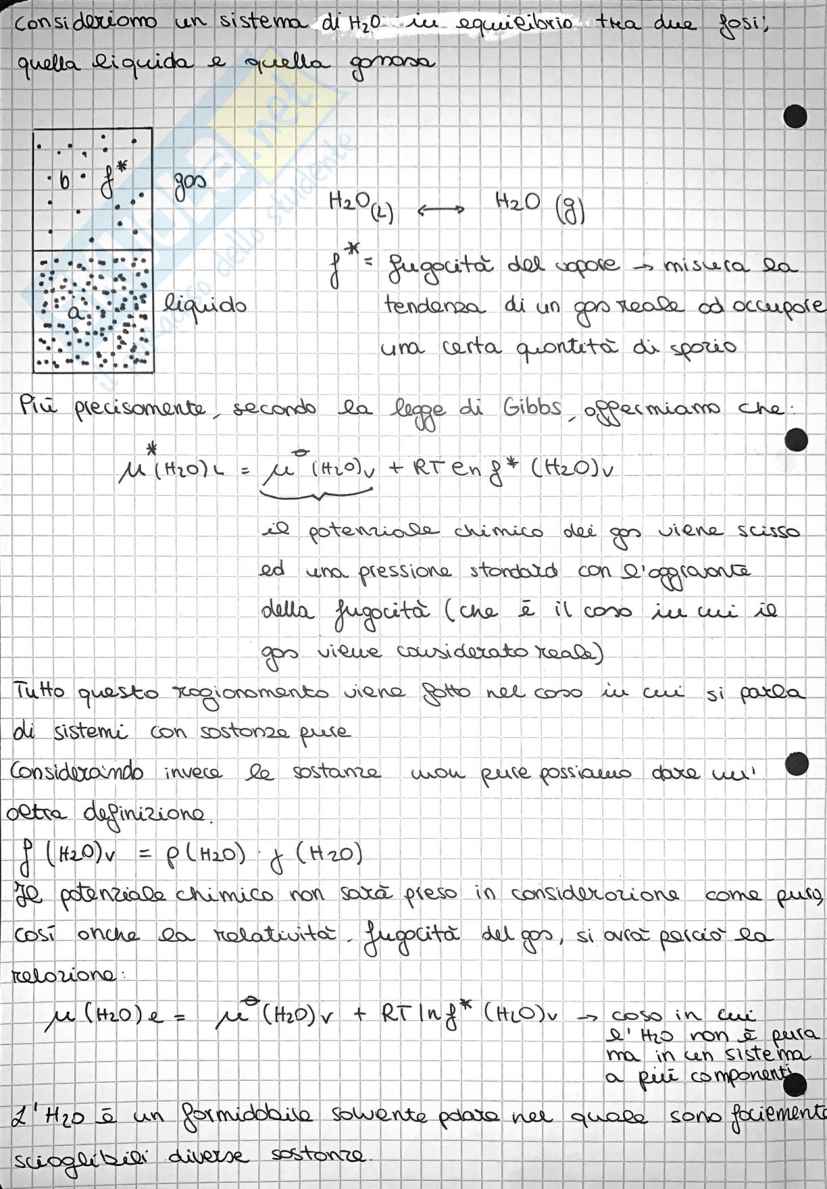 Consideriamo un sistema di H2O in equilibrio tra due fasi;
quella liquida e quella gassosa
b f* gas
H2O(L) ⟷ H2O (g)
f* = fugacità del vapore → misura la
a liquido tendenza di un gas reale ad occupare
una certa quantità di spazio
Più precisamente, secondo la legge di Gibbs, affermiamo che:
μ*(H2O)L = μ⊖(H2O)v + RT ln f* (H2O)v
il potenziale chimico dei gas viene scisso
ed una pressione standard con l'aggravante
della fugacità (che è il caso in cui il
gas viene considerato reale)
Tutto questo ragionamento viene fatto nel caso in cui si parla
di sistemi con sostanze pure
Considerando invece le sostanze non pure possiamo dare un'
altra definizione.
f (H2O)v = p(H2O) · γ (H2O)
Il potenziale chimico non sarà preso in considerazione come puro,
così anche la relatività. fugacità del gas, si avrà perciò la
relazione:
μ (H2O)l = μ⊖(H2O)v + RT ln f* (H2O)v → caso in cui
l'H2O non è pura
ma in un sistema
a più componenti
L'H2O è un formidabile solvente polare nel quale sono facilmente
scioglibili diverse sostanze.